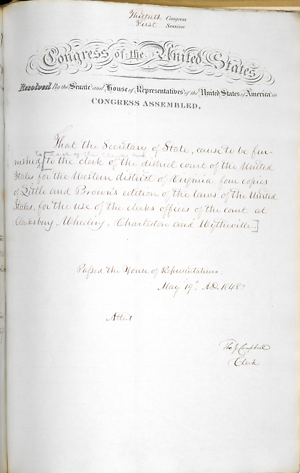 Thirtieth Congress
First Session
Congress of the United States
Resolved By the Senate and House of Representatives of the United States of America in
CONGRESS ASSEMBLED,
That the Secretary of State, cause to be fur-
nished [to the clerk of the district court of the United
States for the Western district of Virginia, four copies
of Little and Brown's edition of the laws of the United
States, for the use of the clerks offices of the court at
Wheeling, Charleston and Wytheville.]
Passed the House of Representatives.
May 19th AD. 1848
Attest
Tho J Campbell
Clerk